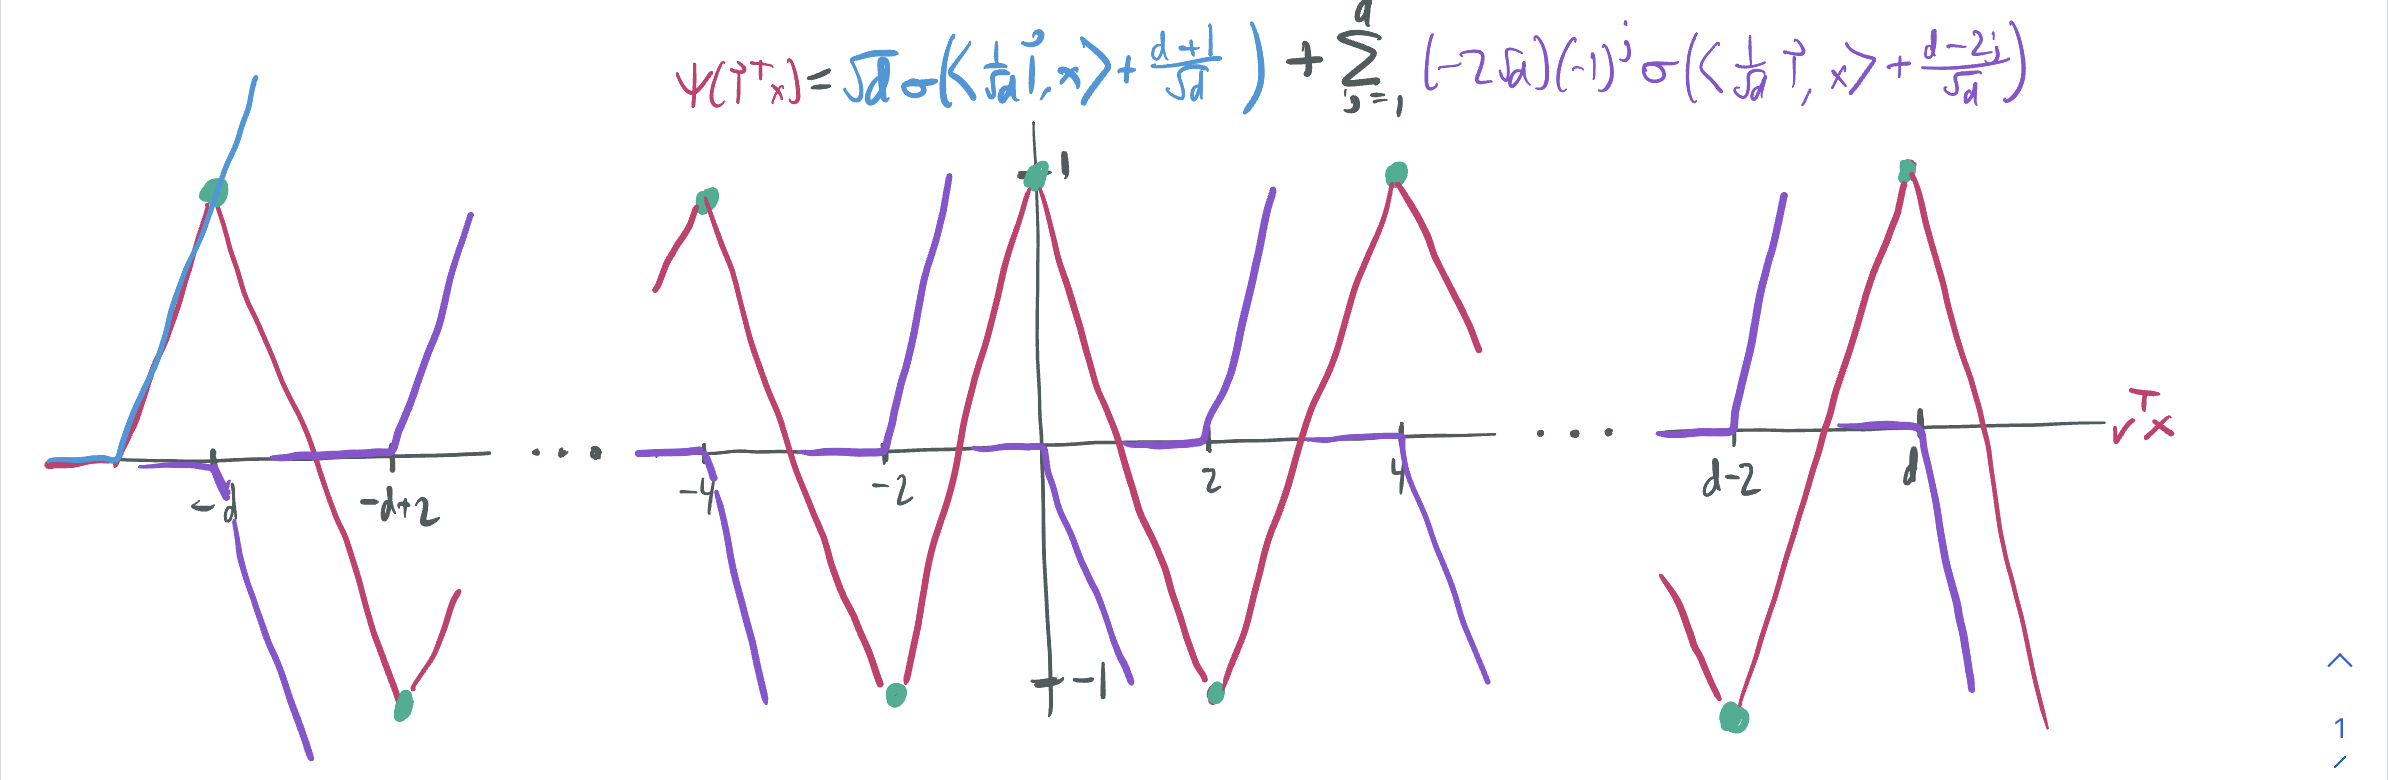 ψ(1⃗ᵀx) = √d σ(⟨1/√d 1⃗, x⟩ + (d+1)/√d) + ∑_{j=1}^{d} (-2√d)(-1)^j σ(⟨1/√d 1⃗, x⟩ + (d-2j)/√d)
1
vᵀx
-d -d+2 ... -4 -2 2 4 ... d-2 d
-1
1